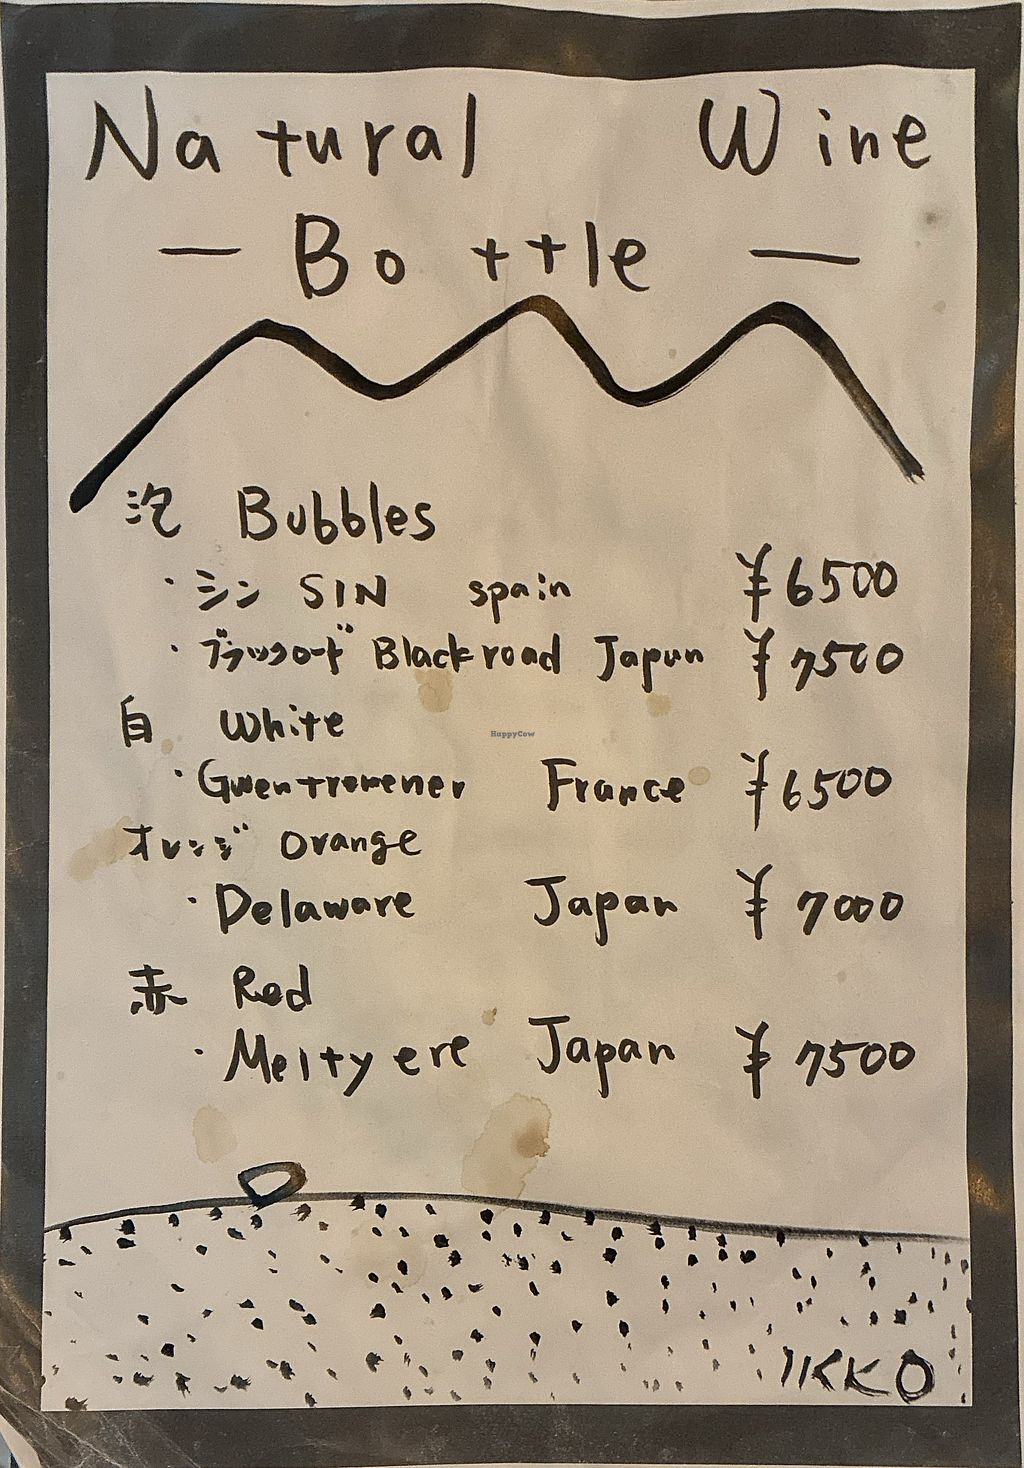 Natural Wine
— Bottle —
泡 Bubbles
・シン SIN spain ¥6500
・ブラックロード Blackroad Japan ¥7500
白 White
HappyCow
・Gwentromener France ¥6500
オレンジ Orange
・Delaware Japan ¥7000
赤 Red
・Melty ere Japan ¥7500
IKKO